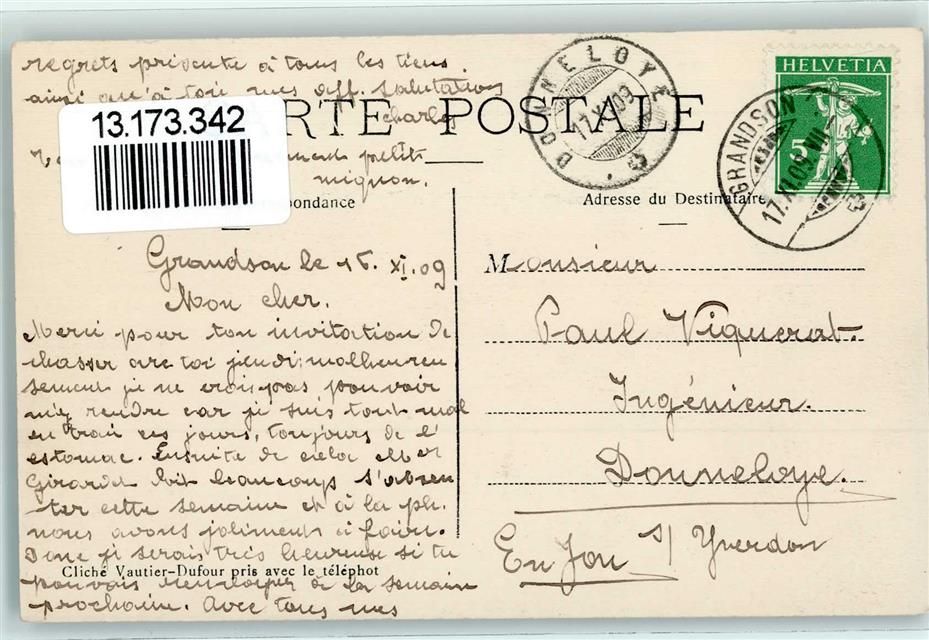 regrets présente à tous les tiens
ainsi qu'à toi mes aff. salutations
Charles
petit
mignon.
13.173.342
CARTE POSTALE
DONNELOYE
17.XI.09
HELVETIA
5
GRANDSON
17.XI.09
VII
Correspondance
Adresse du Destinataire
Grandson le 16. XI. 09
Mon cher.
Merci pour ton invitation de
chasser avec toi jeudi; malheureu
sement je ne crois pas pouvoir
m'y rendre car je suis tout mal
en train ces jours, toujours de l'
estomac. Ensuite de cela Mer
Girardet doit beaucoup s'absen
ter cette semaine et à la ph.
nous avons joliment à faire.
Donc je serais très heureux si tu
pouvais renvoyer à la semaine
prochaine. Avec tous mes
Cliché Vautier-Dufour pris avec le téléphot
Monsieur
Paul Viquerat.
Ingénieur.
Donneloye.
En Jon s/ Yverdon